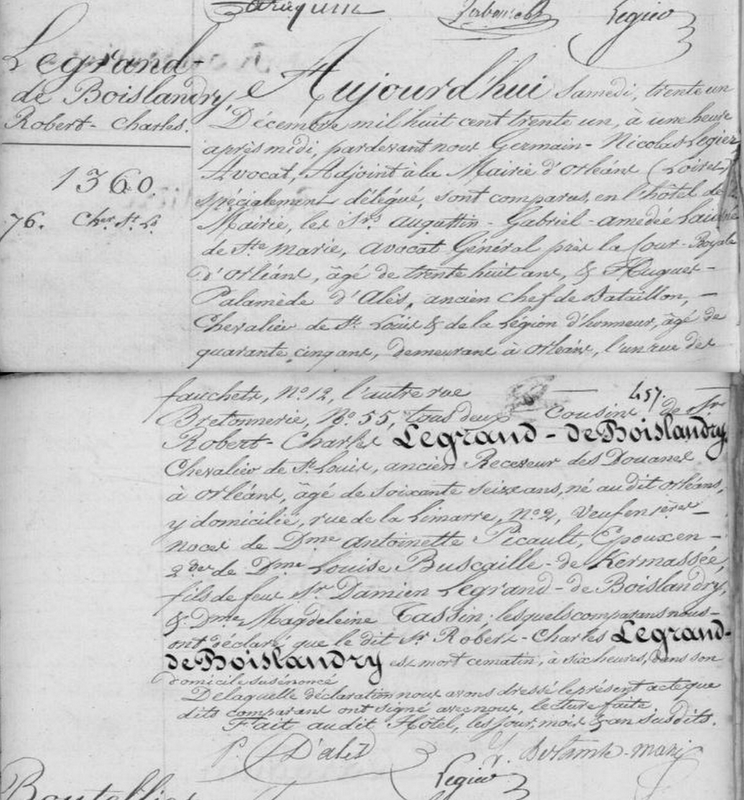 Legier
Legrand-
de Boislandry,
Robert-Charles.
1360.
76. Cher. St. L.
Aujourd'hui Samedi, trente un
Décembre mil huit cent trente un, à une heure
après midi, pardevant nous Germain-Nicolas Legier
Avocat, Adjoint à la Mairie d'orléans (Loiret)
spécialement délégué, sont comparus, en l'hôtel de la
Mairie, les Srs. augustin-Gabriel-amedée
de Ste. marie, avocat Général près la Cour-Royale
d'Orléans, âgé de trente huit ans, & Hugues-
Palamède d'Alès, ancien chef de Bataillon,-
Chevalier de St. Louis & de la Légion d'honneur, âgé de
quarante cinq ans, demeurant à orléans, l'un rue des
fauchets, No. 12, l'autre rue
457.
Bretonnerie, No. 55, tous deux Cousins de Sr.
Robert-Charles Legrand-de Boislandry,
Chevalier de St. Louis, ancien Receveur des Douanes
à orléans, âgé de soixante seize ans, né au dit orléans,
y domicilié, rue de la Limarre, no. 2, veuf en 1ères-
noces de Dme antoinette Picault, Epoux en-
2des. de Dme. Louise Buscaille-de Kermassée,
fils de feus Sr. Damien Legrand-de Boislandry,
& Dme. Magdeleine Tassin; lesquels comparans nous-
ont déclaré que le dit Sr. Robert-Charles Legrand-
de Boislandry est mort ce matin, à six heures, dans son
domicile susénoncé
De laquelle déclaration nous avons dressé le présent acte que
dits comparans ont signé avec nous, lecture faite.
Fait audit Hôtel, les jour, mois & an susdits.
P. D'alès
de Sainte-marie
Legier